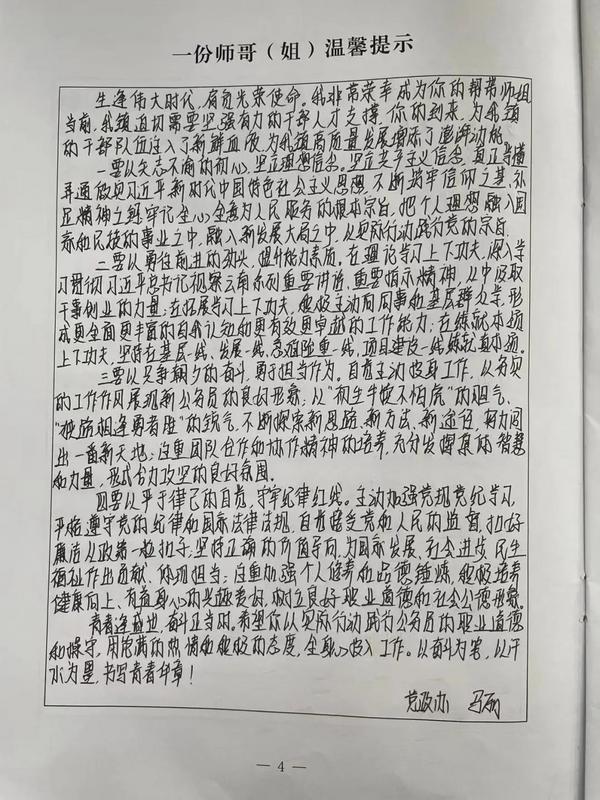 一份师哥（姐）温馨提示
生逢伟大时代，肩负光荣使命。我非常荣幸成为你的帮带师姐
当前，我镇迫切需要坚强有力的干部人才支撑，你的到来，为我镇
的干部队伍注入了新鲜血液，为我镇高质量发展增添了澎湃动能
一要以矢志不渝的初心，坚定理想信念。坚定共产主义信念，真正学懂
弄通做实习近平新时代中国特色社会主义思想，不断筑牢信仰之基、补
足精神之钙，牢记全心全意为人民服务的根本宗旨，把个人理想融入国
家和民族的事业之中，融入新发展大局之中，以实际行动践行党的宗旨。
二要以勇往前进的劲头，提升能力素质。在理论学习上下功夫，深入学
习贯彻习近平总书记视察云南系列重要讲话、重要指示精神，从中汲取
干事创业的力量；在拓展学习上下功夫，积极主动向同事和基层群众学，形
成更全面更丰富的自我认知和更有效更卓越的工作能力；在练就本领
上下功夫，坚持在基层一线、发展一线、急难险重一线，项目建设一线练就真本领。
三要以只争朝夕的奋斗，勇于担当作为。自觉主动投身工作，以务实
的工作作风展现新公务员的良好形象；以“初生牛犊不怕虎”的胆气、
“狭路相逢勇者胜”的锐气，不断探索新思路、新方法、新途径，努力闯
出一番新天地；注重团队合作和协作精神的培养，充分发挥集体智慧
和力量，形成合力攻坚的良好氛围。
四要以严于律己的自觉，守牢纪律红线。主动加强党规党纪学习，
严格遵守党的纪律和国家法律法规，自觉接受党和人民的监督，扣好
廉洁从政第一粒扣子；坚持正确的价值导向，为国家发展、社会进步、民生
福祉作出贡献、体现担当；注重加强个人修养和品德锤炼，积极培养
健康向上、有益身心的兴趣爱好，树立良好职业道德和社会公德形象。
青春逢盛世，奋斗正当时。希望你以实际行动践行公务员的职业道德
和操守，用饱满的热情和积极的态度，全身心投入工作。以奋斗为笔，以汗
水为墨，书写青春华章！
党政办 马丽
— 4 —